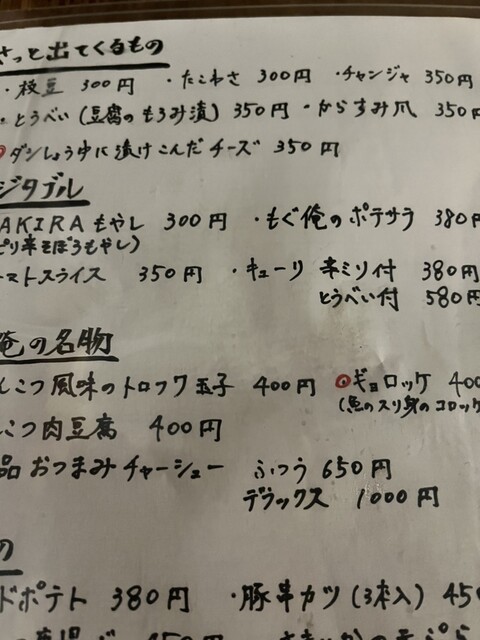 さっと出てくるもの
・枝豆 300円 ・たこわさ 300円 ・チャンジャ 350円
・とうべい(豆腐のもろみ漬) 350円 ・からすみ爪 350円
◎ダシしょう中に漬けこんだチーズ 350円
ジタブル
AKIRAもやし 300円 ・もぐ俺のポテサラ 380円
ピリ辛そぼろもやし)
マトスライス 350円 ・キューリ 辛ミソ付 380円
とうべい付 580円
俺の名物
んこつ風味のトロフワ玉子 400円 ◎ギョロッケ 400
(魚のスリ身のコロッケ
んこつ肉豆腐 400円
品おつまみチャーシュー ふつう 650円
デラックス 1000円
の
ドポテト 380円 ・豚串カツ(3本入) 450